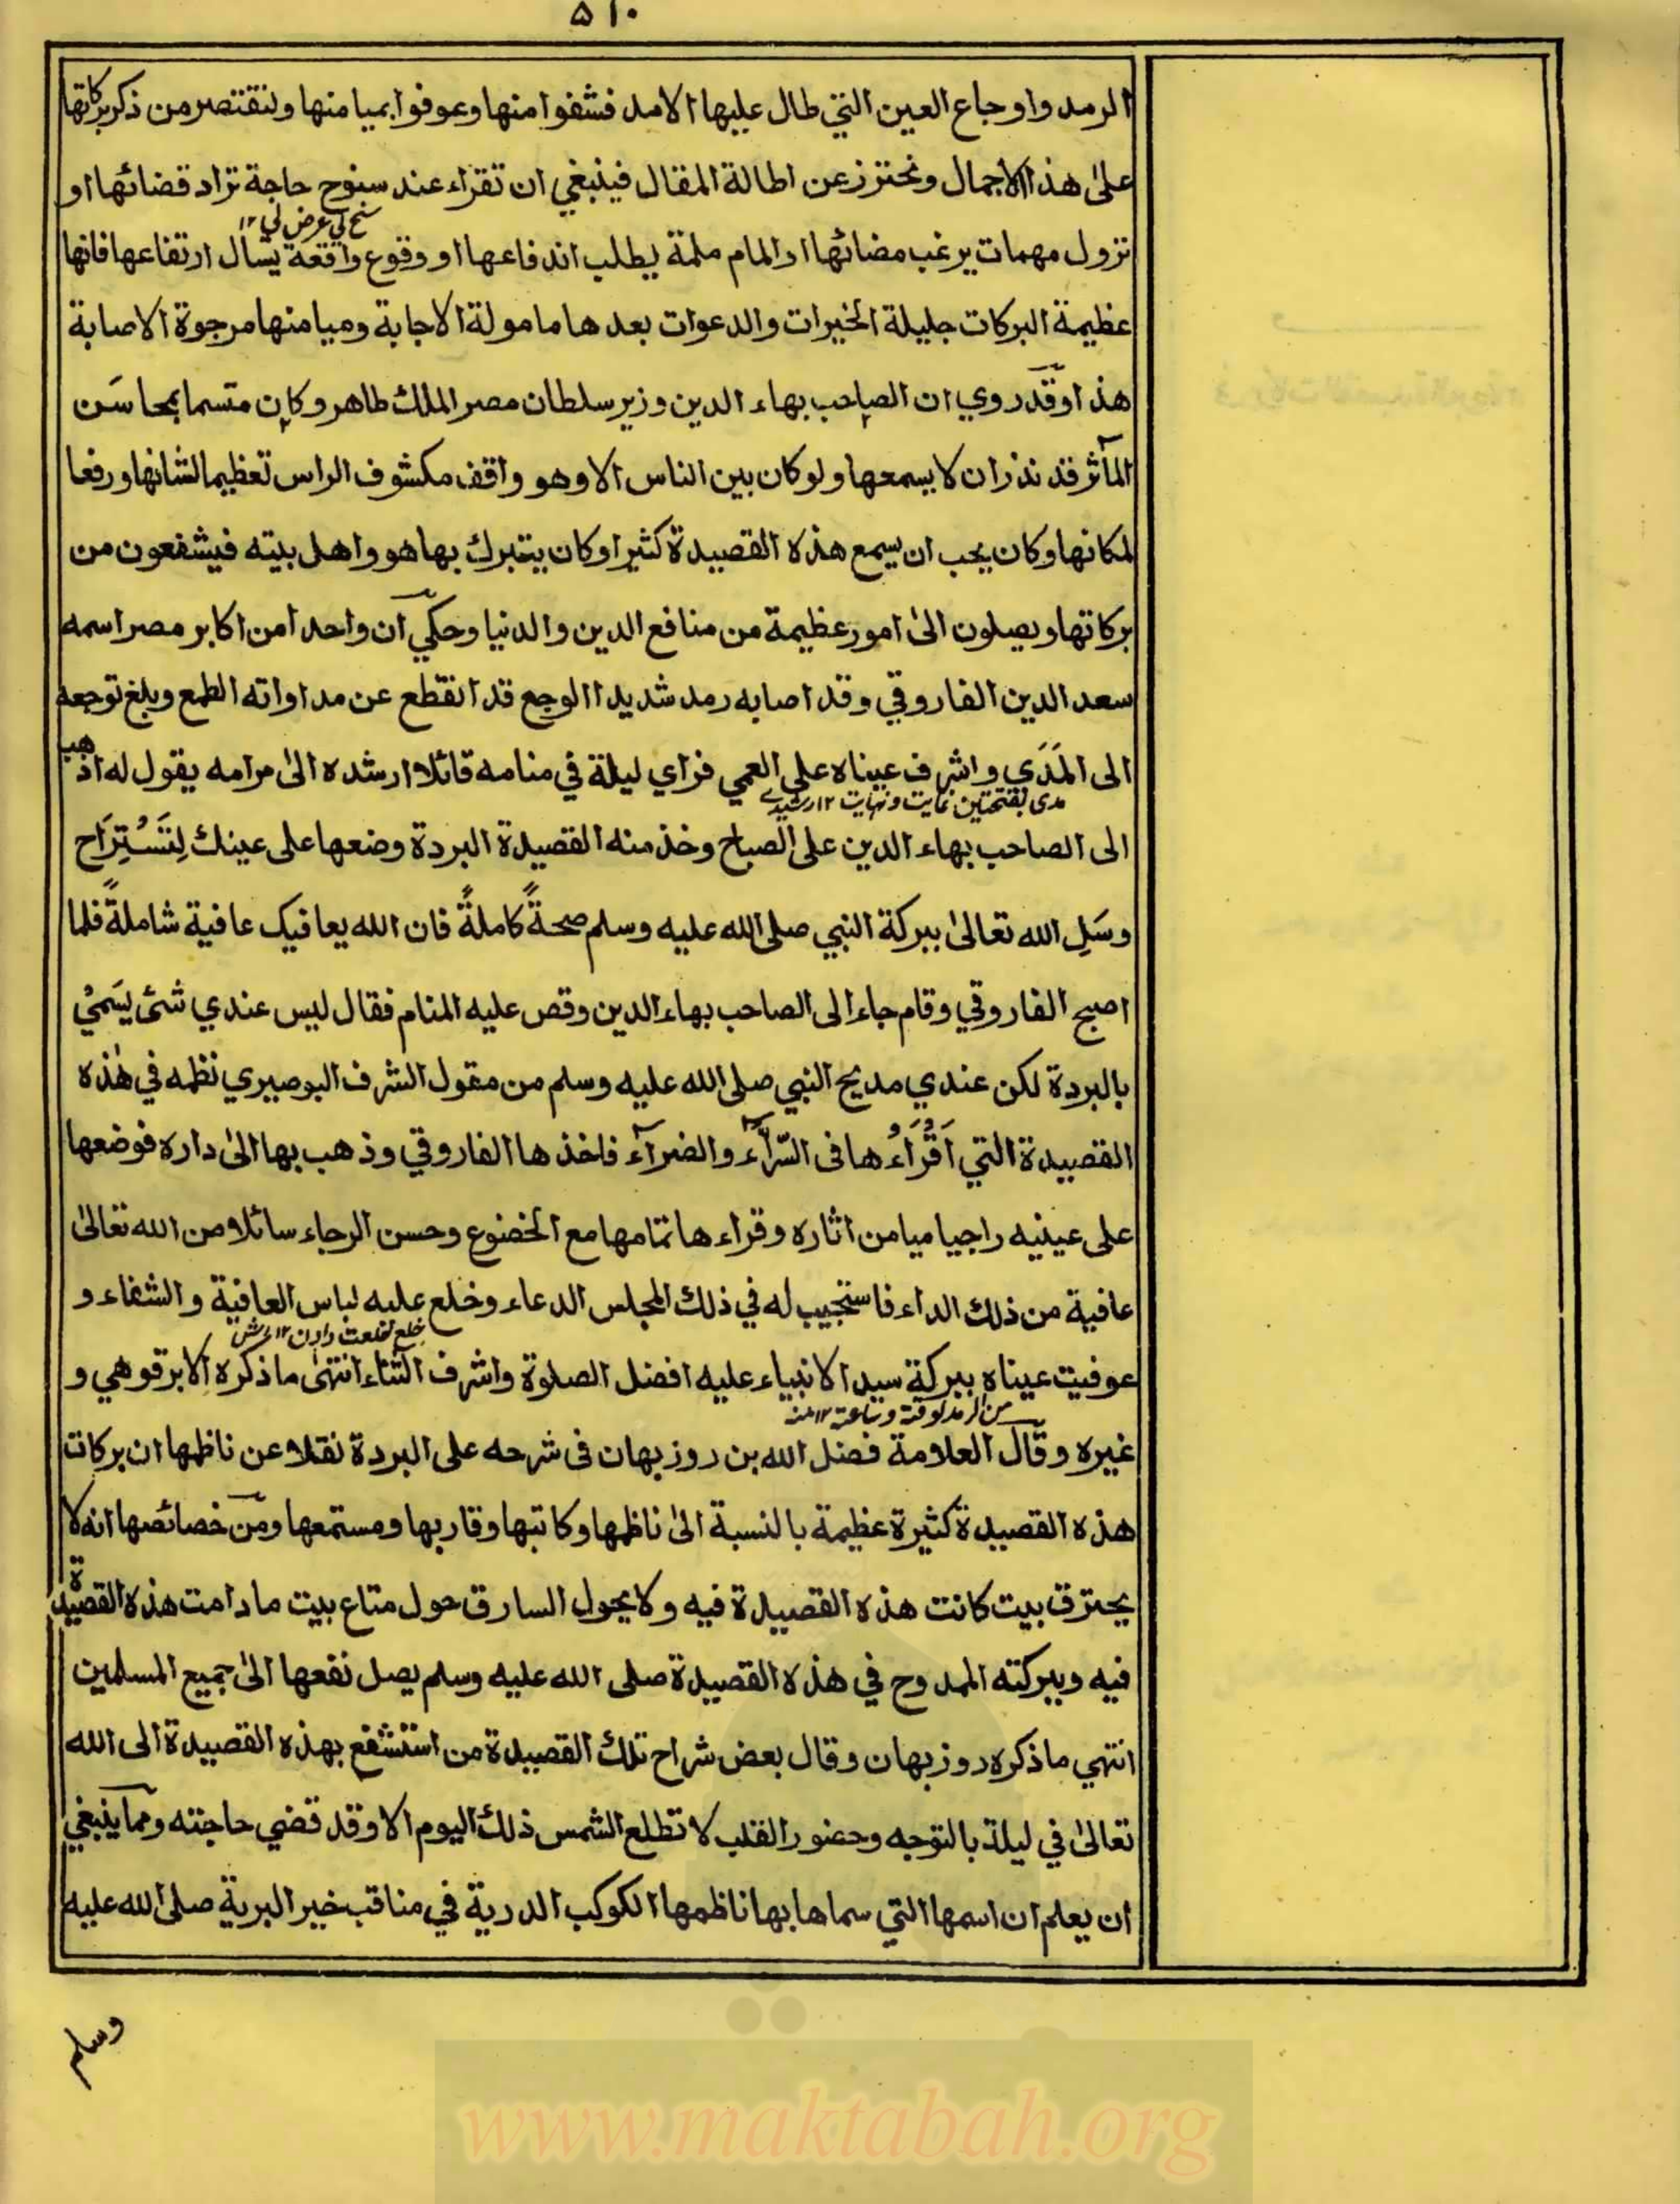 ۵۱۰
الرمد واوجاع العين التي طال عليها الامد فشفوا منها وعوفوا بميامنها ولنقتصر من ذكر بركاتها
على هذا الاجمال ونحترز عن اطالة المقال فينبغي ان تقراء عند سنوح حاجة تراد قضائها او
سنح لي عرض لي ١٢
نزول مهمات يرغب مضائها او المام ملمة يطلب اندفاعها او وقوع واقعة يسال ارتفاعها فانها
عظيمة البركات جليلة الخيرات والدعوات بعدها مامولة الاجابة وميامنها مرجوة الاصابة
هذا وقد روي ان الصاحب بهاء الدين وزير سلطان مصر الملك طاهر وكان متسما بمحاسَن
المآثر قد نذر ان لا يسمعها ولو كان بين الناس الا وهو واقف مكشوف الراس تعظيما لشانها ورفعا
لمكانها وكان يحب ان يسمع هذه القصيدة كثيرا وكان يتبرك بها هو واهل بيته فيشفعون من
بركاتها ويصلون الىٰ امور عظيمة من منافع الدين والدنيا وحكي ان واحدا من اكابر مصر اسمه
سعد الدين الفاروقي وقد اصابه رمد شديد الوجع قد انقطع عن مداواته الطمع وبلغ توجعه
الى المَدَي واشرف عيناه على العمي فراي ليلة في منامه قائلا ارشده الىٰ مرامه يقول له اذهب
مدى بفتحتين غايت ونهايت ١٢ رشيدي
الى الصاحب بهاء الدين على الصباح وخذ منه القصيدة البردة وضعها على عينك لِتَسْتِرَاح
وسَلِ الله تعالىٰ ببركة النبي صلى الله عليه وسلم صحةً كاملةً فان الله يعافيك عافية شاملةً فلما
اصبح الفاروقي وقام جاء الى الصاحب بهاء الدين وقص عليه المنام فقال ليس عندي شئ يسَميٰ
بالبردة لكن عندي مديح النبي صلى الله عليه وسلم من مقول الشرف البوصيري نظمه في هٰذه
القصيدة التي اَقْرَاءُها فى السّرآء والضرآء فاخذها الفاروقي وذهب بها الىٰ داره فوضعها
على عينيه راجيا ميامن اثاره وقراءها تمامها مع الخضوع وحسن الرجاء سائلا من الله تعالىٰ
عافية من ذلك الداء فاستجيب له في ذلك المجلس الدعاء وخلع عليه لباس العافية والشفاء و
خلع خلعت دادن ١٢
عوفيت عيناه ببركة سيد الانبياء عليه افضل الصلوة واشرف الثناء انتهىٰ ما ذكره الابرقوهي و
من الرمد لوقته وساعته ١٢ منه
غيره وقال العلامة فضل الله بن روزبهان فى شرحه على البردة نقلا عن ناظمها ان بركات
هذه القصيدة كثيرة عظيمة بالنسبة الىٰ ناظمها وكاتبها وقاريها ومستمعها ومن خصائصها انه لا
يحترق بيت كانت هذه القصيدة فيه ولا يحول السارق حول متاع بيت ما دامت هذه القصيدة
فيه وببركته الممدوح في هذه القصيدة صلى الله عليه وسلم يصل نفعها الىٰ جميع المسلمين
انتهي ما ذكره روزبهان وقال بعض شراح تلك القصيدة من استشفع بهذه القصيدة الى الله
تعالىٰ في ليلة بالتوجه وحضور القلب لا تطلع الشمس ذلك اليوم الا وقد قضي حاجته ومما ينبغي
ان يعلم ان اسمها التي سماها بها ناظمها الكوكب الدرية في مناقب خير البرية صلى الله عليه
وسلم
www.maktabah.org